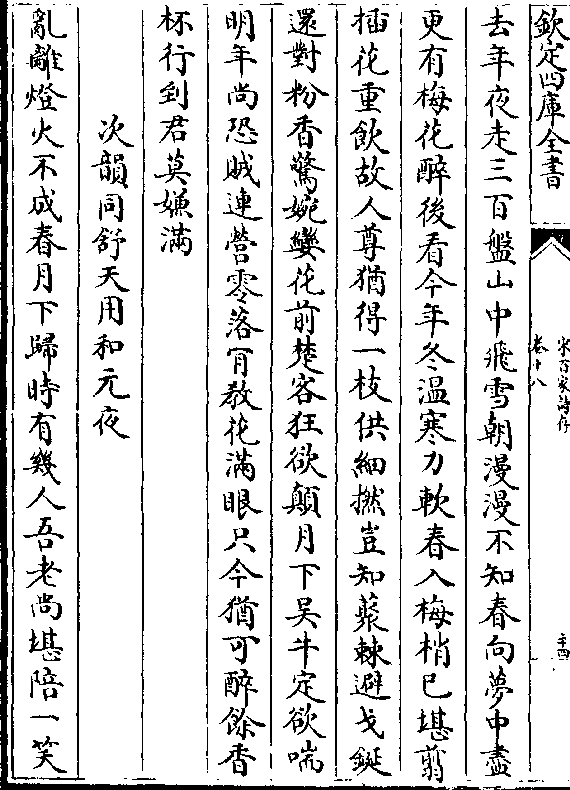 欽定四庫全書
宋百家詩存
卷十八
去年夜走三百盤山中飛雪朝漫漫不知春向夢中盡
更有梅花醉後看今年冬温寒力軟春入梅梢已堪剪
插花重飲故人尊猶得一枝供細撚豈知蒺棘避戈鋋
還對粉香驚婉孌花前楚客狂欲顛月下吳牛定欲喘
明年尚恐賊連營零落肎教花滿眼只今猶可醉餘香
杯行到君莫嫌滿
次韻同舒天用和元夜
亂離燈火不成春月下歸時有幾人吾老尚堪陪一笑